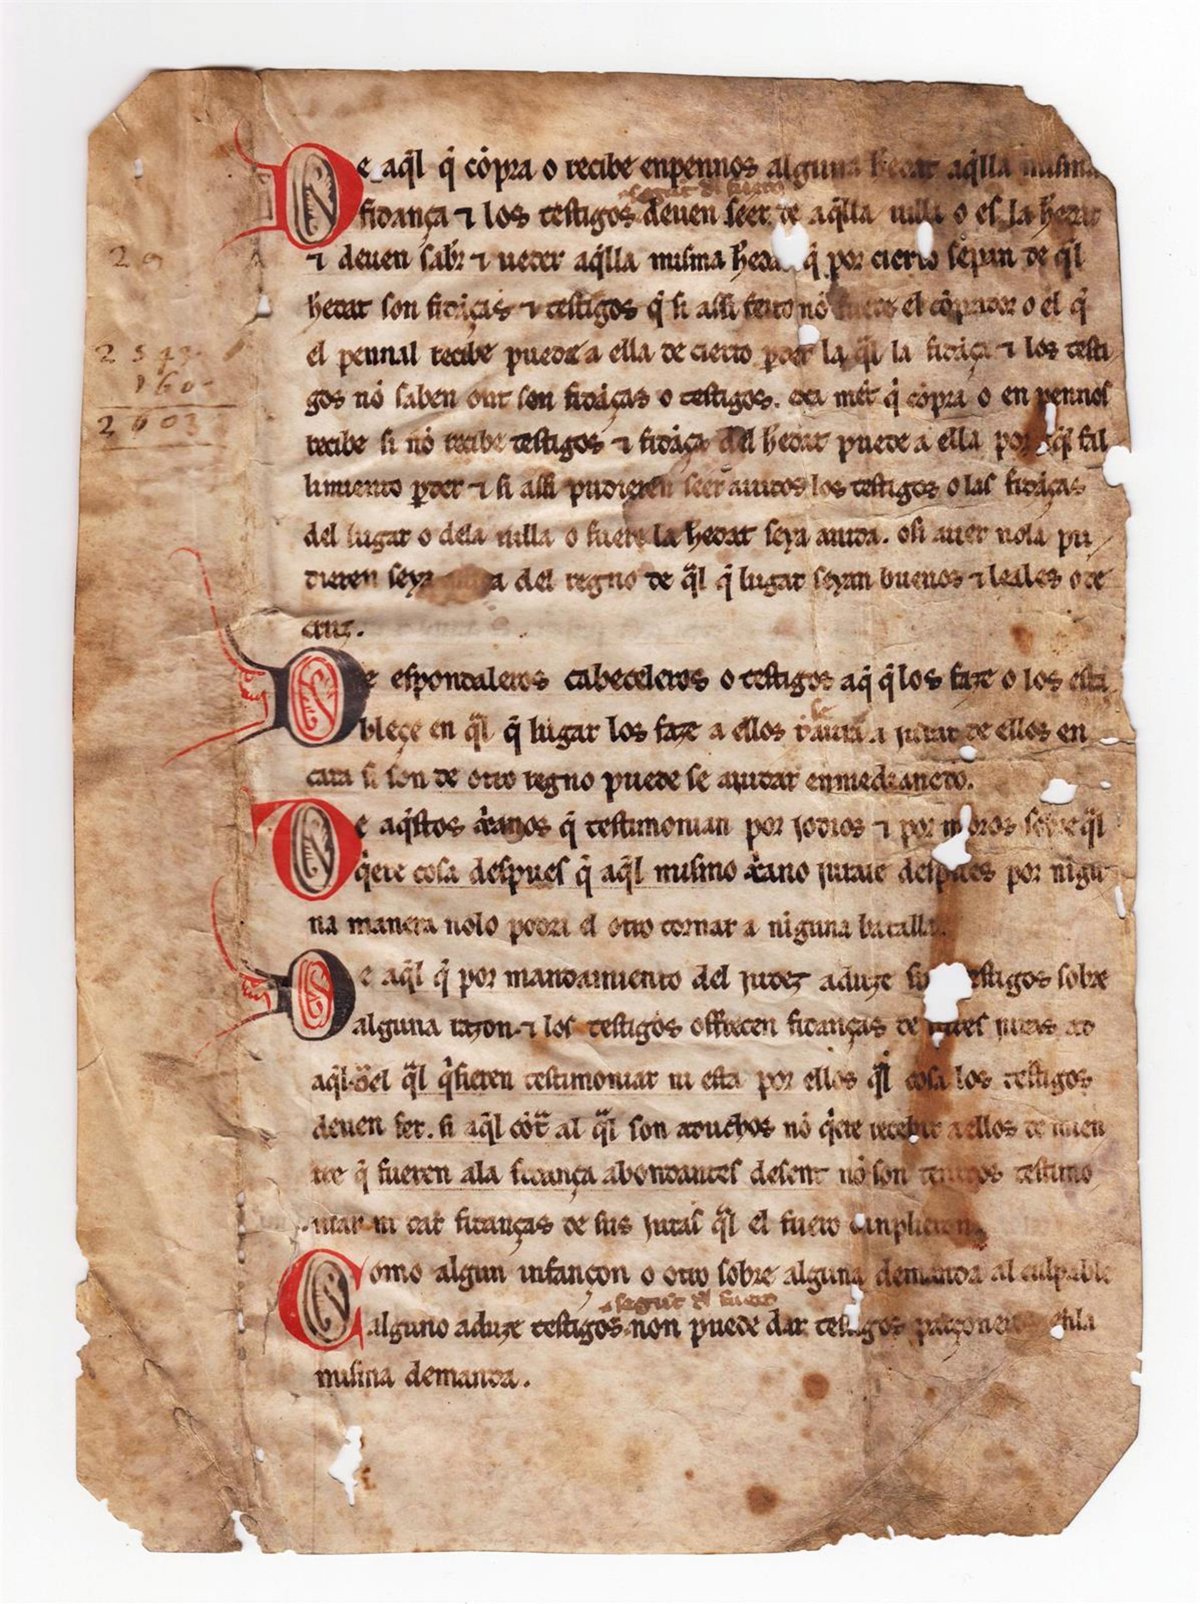 De aq̄l q̄ cōpra o recibe enpennos alguna hedat aq̄lla misma
segūt el fuero
fidança ⁊ los testigos deuen seer de aq̄lla uilla o es la hedat
⁊ deuen sab̄r ⁊ ueder aq̄lla misma q̄ por cierto sepan de q̄l
hedat son fidāças ⁊ testigos q̄ si assi feito nō fuere el cōprador o el q̄
el pennal recibe puede a ella de cierto ꝑder la q̄l la fidāça ⁊ los testi
gos nō saben ont son fidāças o testigos. q̄ cōpra o en pennos
recibe si nō recibe testigos ⁊ fidāça del hedat puede a ella por aq̄l fal
limiento ꝑder ⁊ si assi pudieren seer auidos los testigos o las fidāças
del lugar o dela uilla o fuere la hedat seya auida. o si auer nola pu
dieren seya del regno de q̄l q̄ lugar seyan buenos ⁊ leales o de
cruz.
De espondaleros cabeceleros o testigos aq̄ q̄ los faze o los esta
bleçe en q̄l q̄ lugar los faze a ellos iurar de ellos en
cara si son de otro regno puede se aiudar enmedianedo.
De aq̄stos xr̄anos q̄ testimonian por jodios ⁊ por moros sobre q̄l
q̄ere cosa despues q̄ aq̄l mismo xr̄ano juraue despues por nīgu
na manera nolo podra el otro tornar a niguna batalla.
De aq̄l q̄ por mandamiento del judez aduze testigos sobre
alguna razon ⁊ los testigos offrecen fidanças de juras ad
aq̄l del q̄l q̄sieren testimoniar ni esta por ellos q̄l cosa los testigos
deuen fer. si aq̄l cōt̄ al q̄l son aduchos nō q̄ere recebir a ellos de mien
tre q̄ fueren ala fidança abondantes desent nō son tenidos testimo
niar ni dar fidanças de sus juras q̄l el fuero
Como algun infançon o otro sobre alguna demanda al culpable
segūt el fuero
alguno aduze testigos non puede dar testigos enla
misma demanda.
29
2543
160
2603